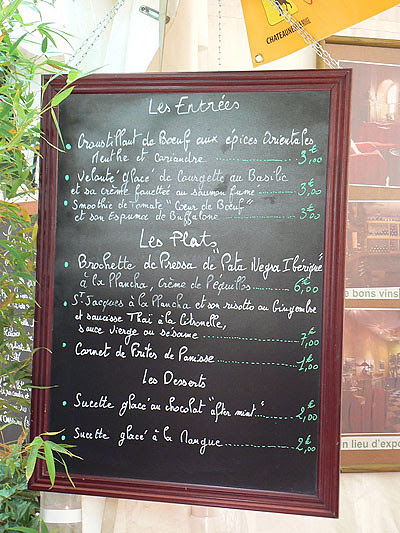 CHATEAUNEUF
Les Entrées
Croustillant de Bœuf aux épices Orientales
Menthe et Coriandre 3€,00
Velouté glacé de Courgette au Basilic
et sa crème fouettée au saumon fumé 3€,00
Smoothie de Tomate "Cœur de Bœuf"
et son Espuma de Buffalone 3€,00
Les Plats
Brochette de Pressa de "Pata Negra Ibérique"
à la Plancha, Crème de Péquillos 6€,00
St Jacques à la Plancha et son risotto au gingembre
et saucisse Thaï à la Citronelle,
sauce vierge au sésame 7€,00
Carnet de Frites de Panisse 1€,00
Les Desserts
Sucette glacé au chocolat "after mint" 2€,00
Sucette glacé à la Mangue 2€,00
e bons vins
n lieu d'expo